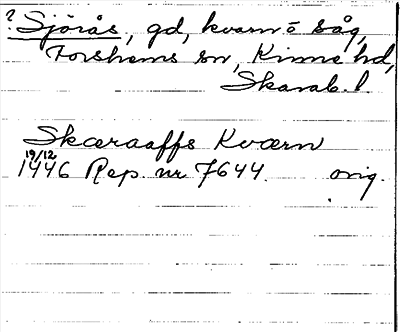 ? Sjörås, gd, kvarn o såg,
Forshems sn, Kinne hd,
Skarab. l.
Skæraaffs Kværn
19/12
1446 Rep. nr 7644. orig.